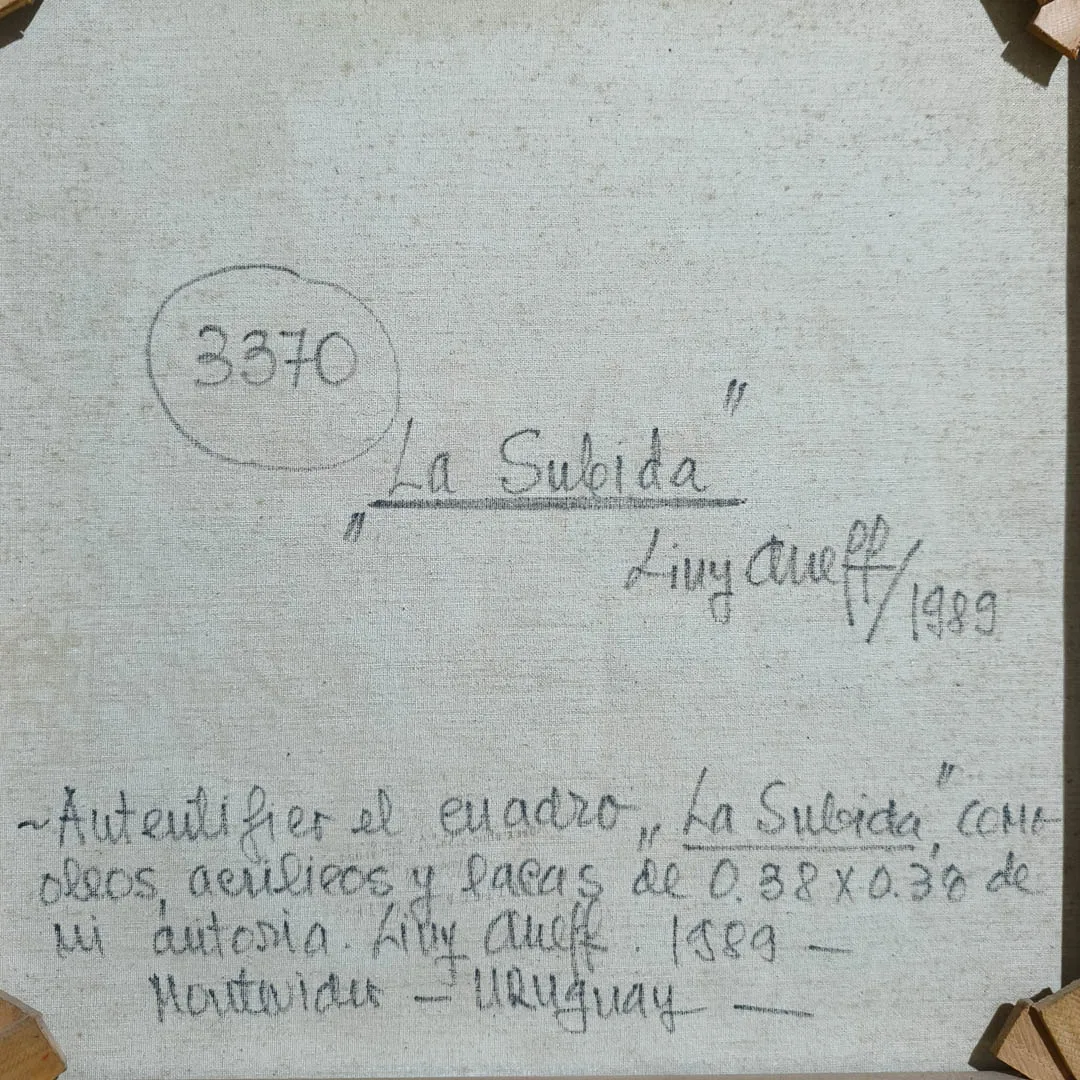 3370
"La Subida"
Livy Aueff/1989
~Autentifier el cuadro "La Subida", como
oleos, acrilicos y lacas de 0.38 x 0.38 de
mi autoria. Livy Aueff. 1989 —
Montevideo — URuguay —